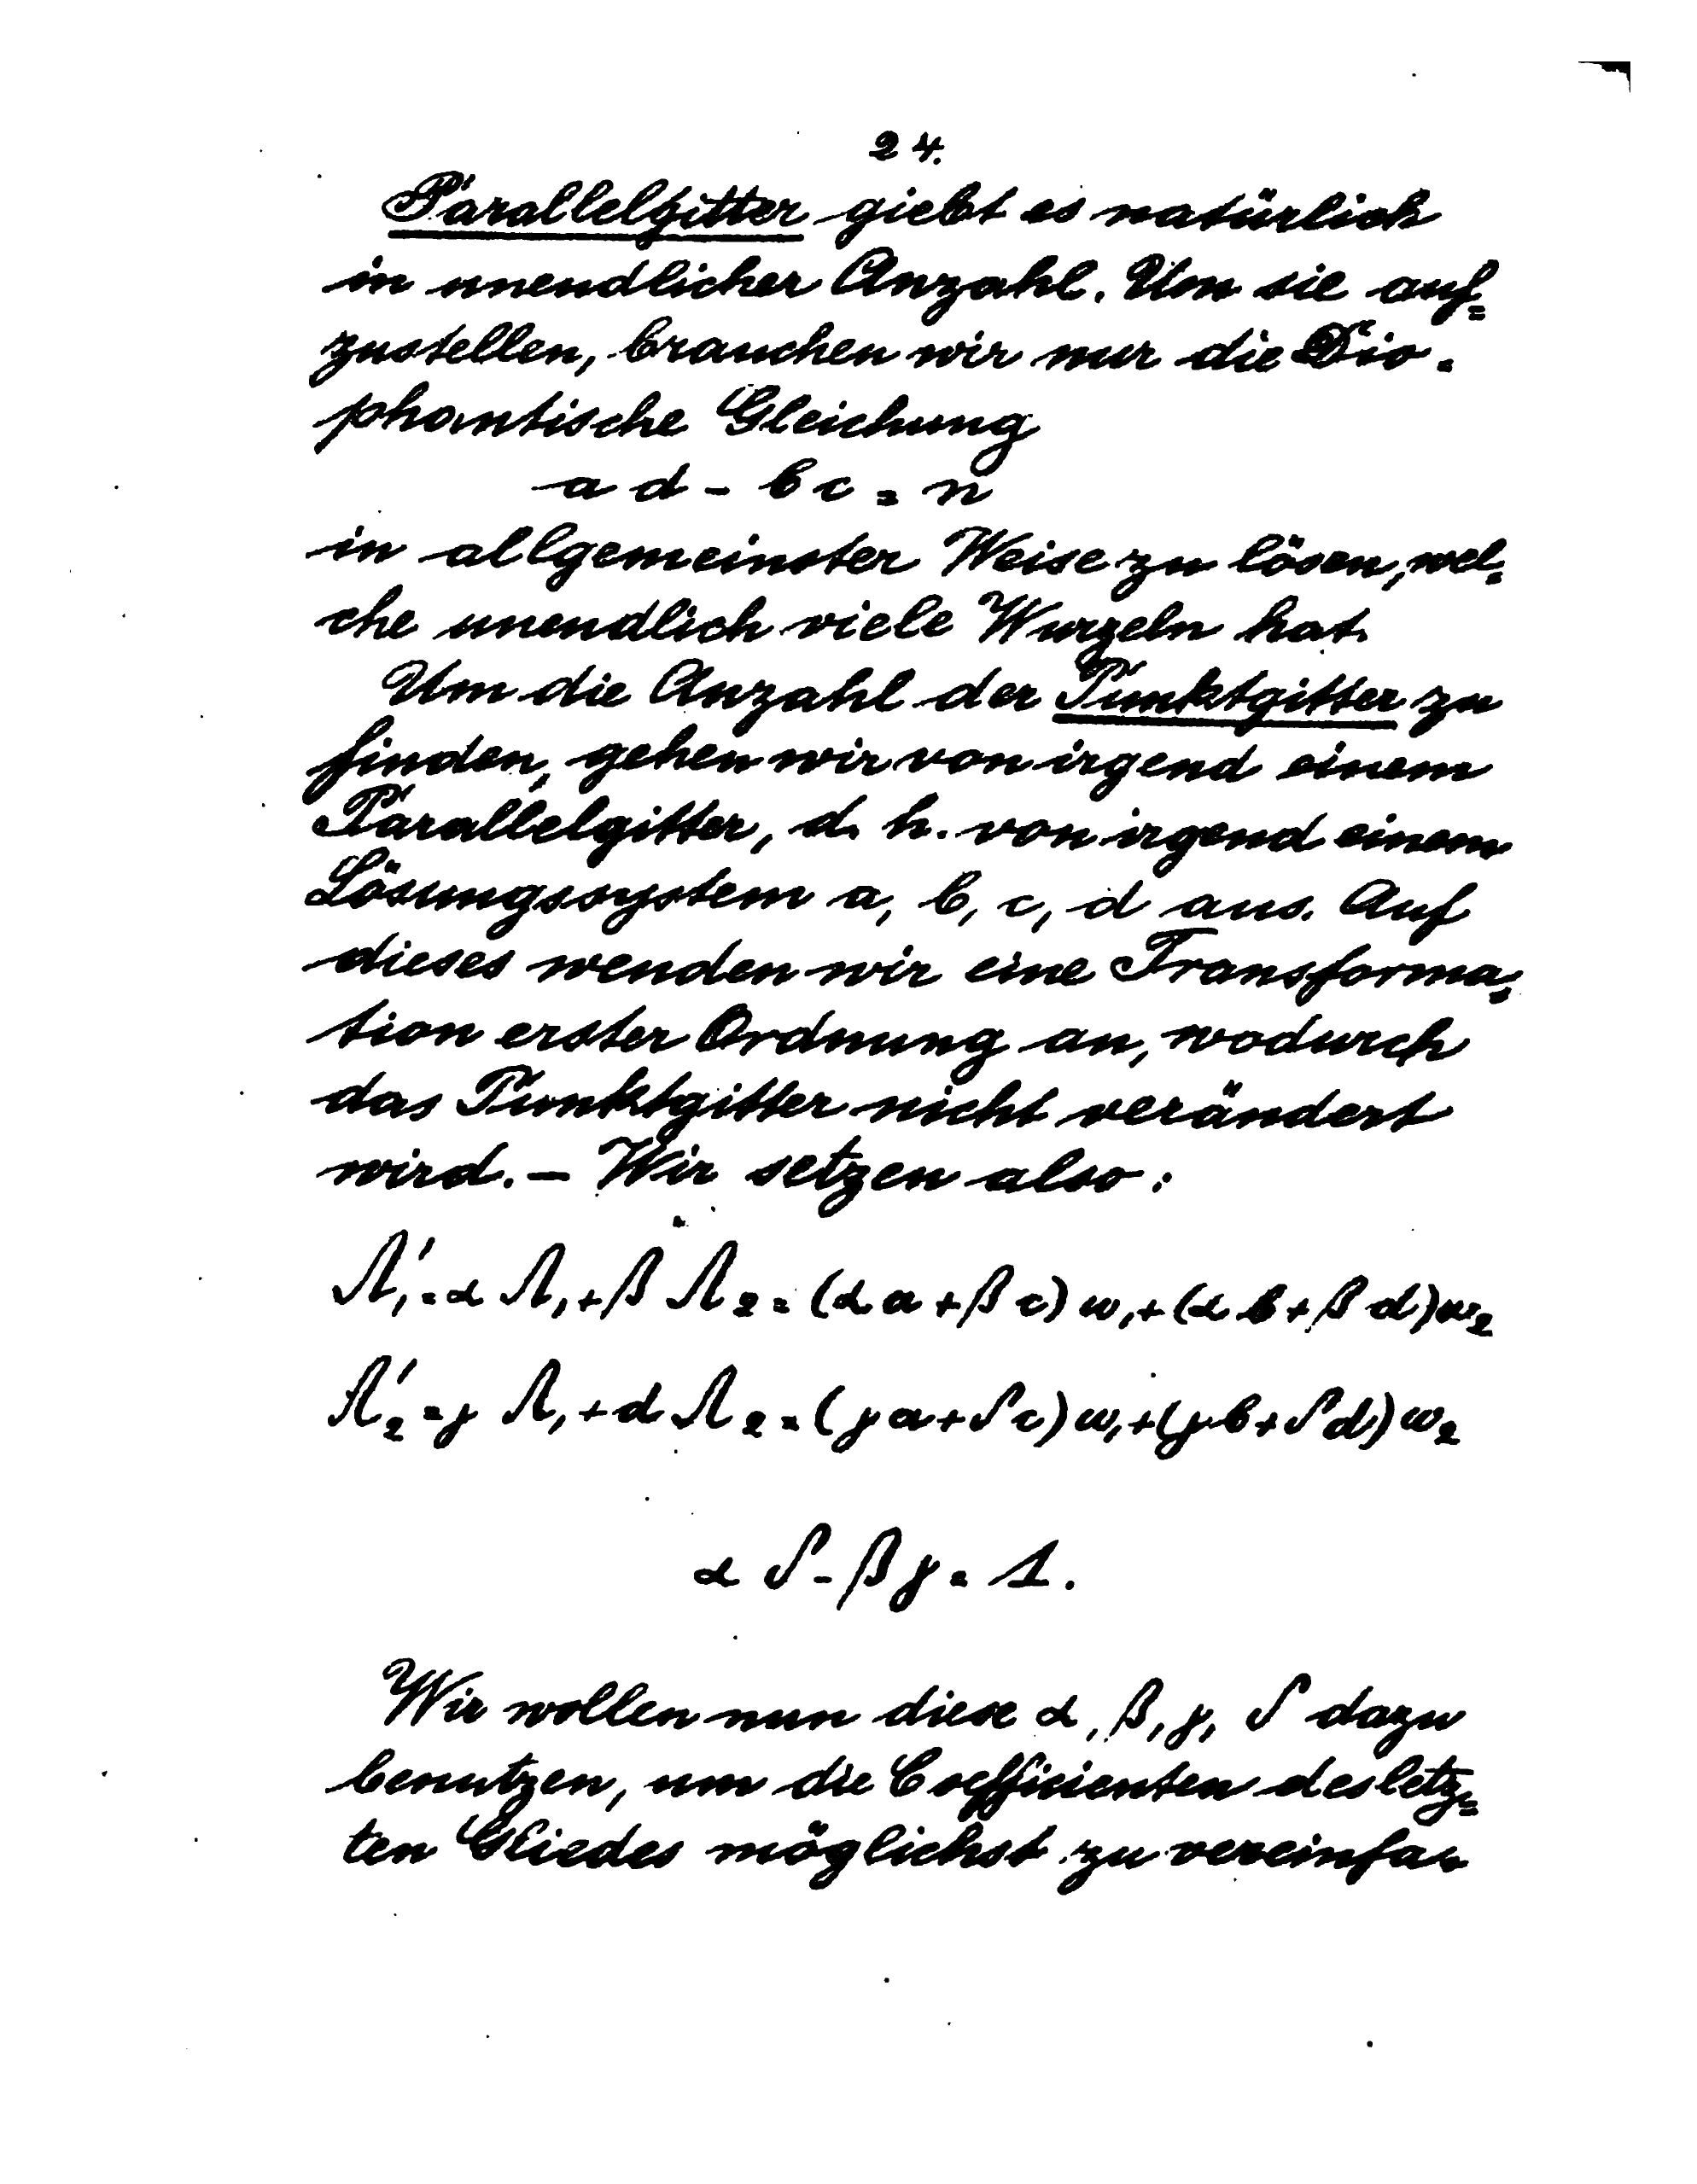 24.
Parallelgitter giebt es natürlich
in unendlicher Anzahl. Um sie auf=
zustellen, brauchen wir nur die Dio-
phantische Gleichung
a d - b c = n
in allgemeinster Weise zu lösen, wel-
che unendlich viele Wurzeln hat.
Um die Anzahl der Punktgitter zu
finden, gehen wir von irgend einem
Parallelgitter, d. h. von irgend einem
Lösungssystem a, b, c, d aus. Auf
dieses wenden wir eine Transforma-
tion erster Ordnung an, wodurch
das Punktgitter nicht verändert
wird. – Wir setzen also:
Λ₁' = α Λ₁ + β Λ₂ = (α a + β c) ω₁ + (α b + β d) ω₂
Λ₂' = γ Λ₁ + d Λ₂ = (γ a + δ c) ω₁ + (γ b + δ d) ω₂
α δ - β γ = 1.
Wir wollen nun diese α, β, γ, δ dazu
benutzen, um die Coefficienten des letz=
ten Gliedes möglichst zu vereinfa-